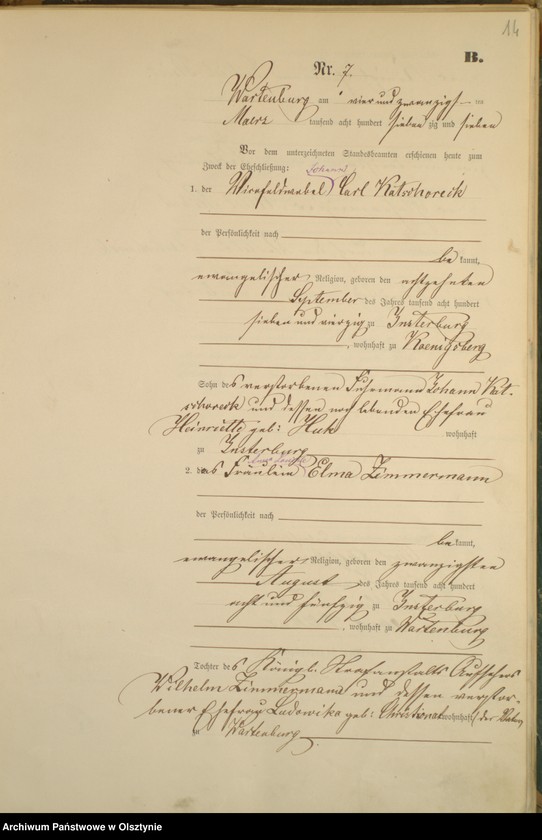 14
B.
Nr. 7.
Wartenburg am vier und zwanzigsten
Maerz tausend acht hundert siebenzig und sieben
Vor dem unterzeichneten Standesbeamten erschienen heute zum
Zweck der Eheschließung:
Johann
1. der Carl Katschoreck
der Persönlichkeit nach
bekannt,
evangelischer Religion, geboren den achtzehnten
September des Jahres tausend acht hundert
sieben und vierzig zu Insterburg
, wohnhaft zu Koenigsberg
Sohn des verstorbenen Fuhrmann Johann Kat-
schoreck und dessen noch lebenden Ehefrau
Henriette geb: Huk wohnhaft
zu Insterburg
2. das Fräulein Elma Zimmermann
der Persönlichkeit nach
bekannt,
evangelischer Religion, geboren den zwanzigsten
August des Jahres tausend acht hundert
acht und fünfzig zu Insterburg
, wohnhaft zu Wartenburg
Tochter des Königl. Strafanstalts Aufsehers
Wilhelm Zimmermann und dessen verstor-
bener Ehefrau Ludowika geb: wohnhaft (der Vater)
zu Wartenburg
Archiwum Państwowe w Olsztynie